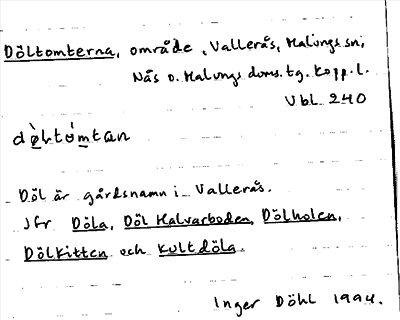 Döltomterna, område, Vallerås, Malungs sn,
Nås o. Malungs doms.tg. Kopp. l.
Vbl 240
dø̀ltómtan
Döl är gårdsnamn i Vallerås.
Jfr Döla, Döl Halvarboden, Dölholen,
Dölkitten och Kultdöla.
Inger Döhl 1994.